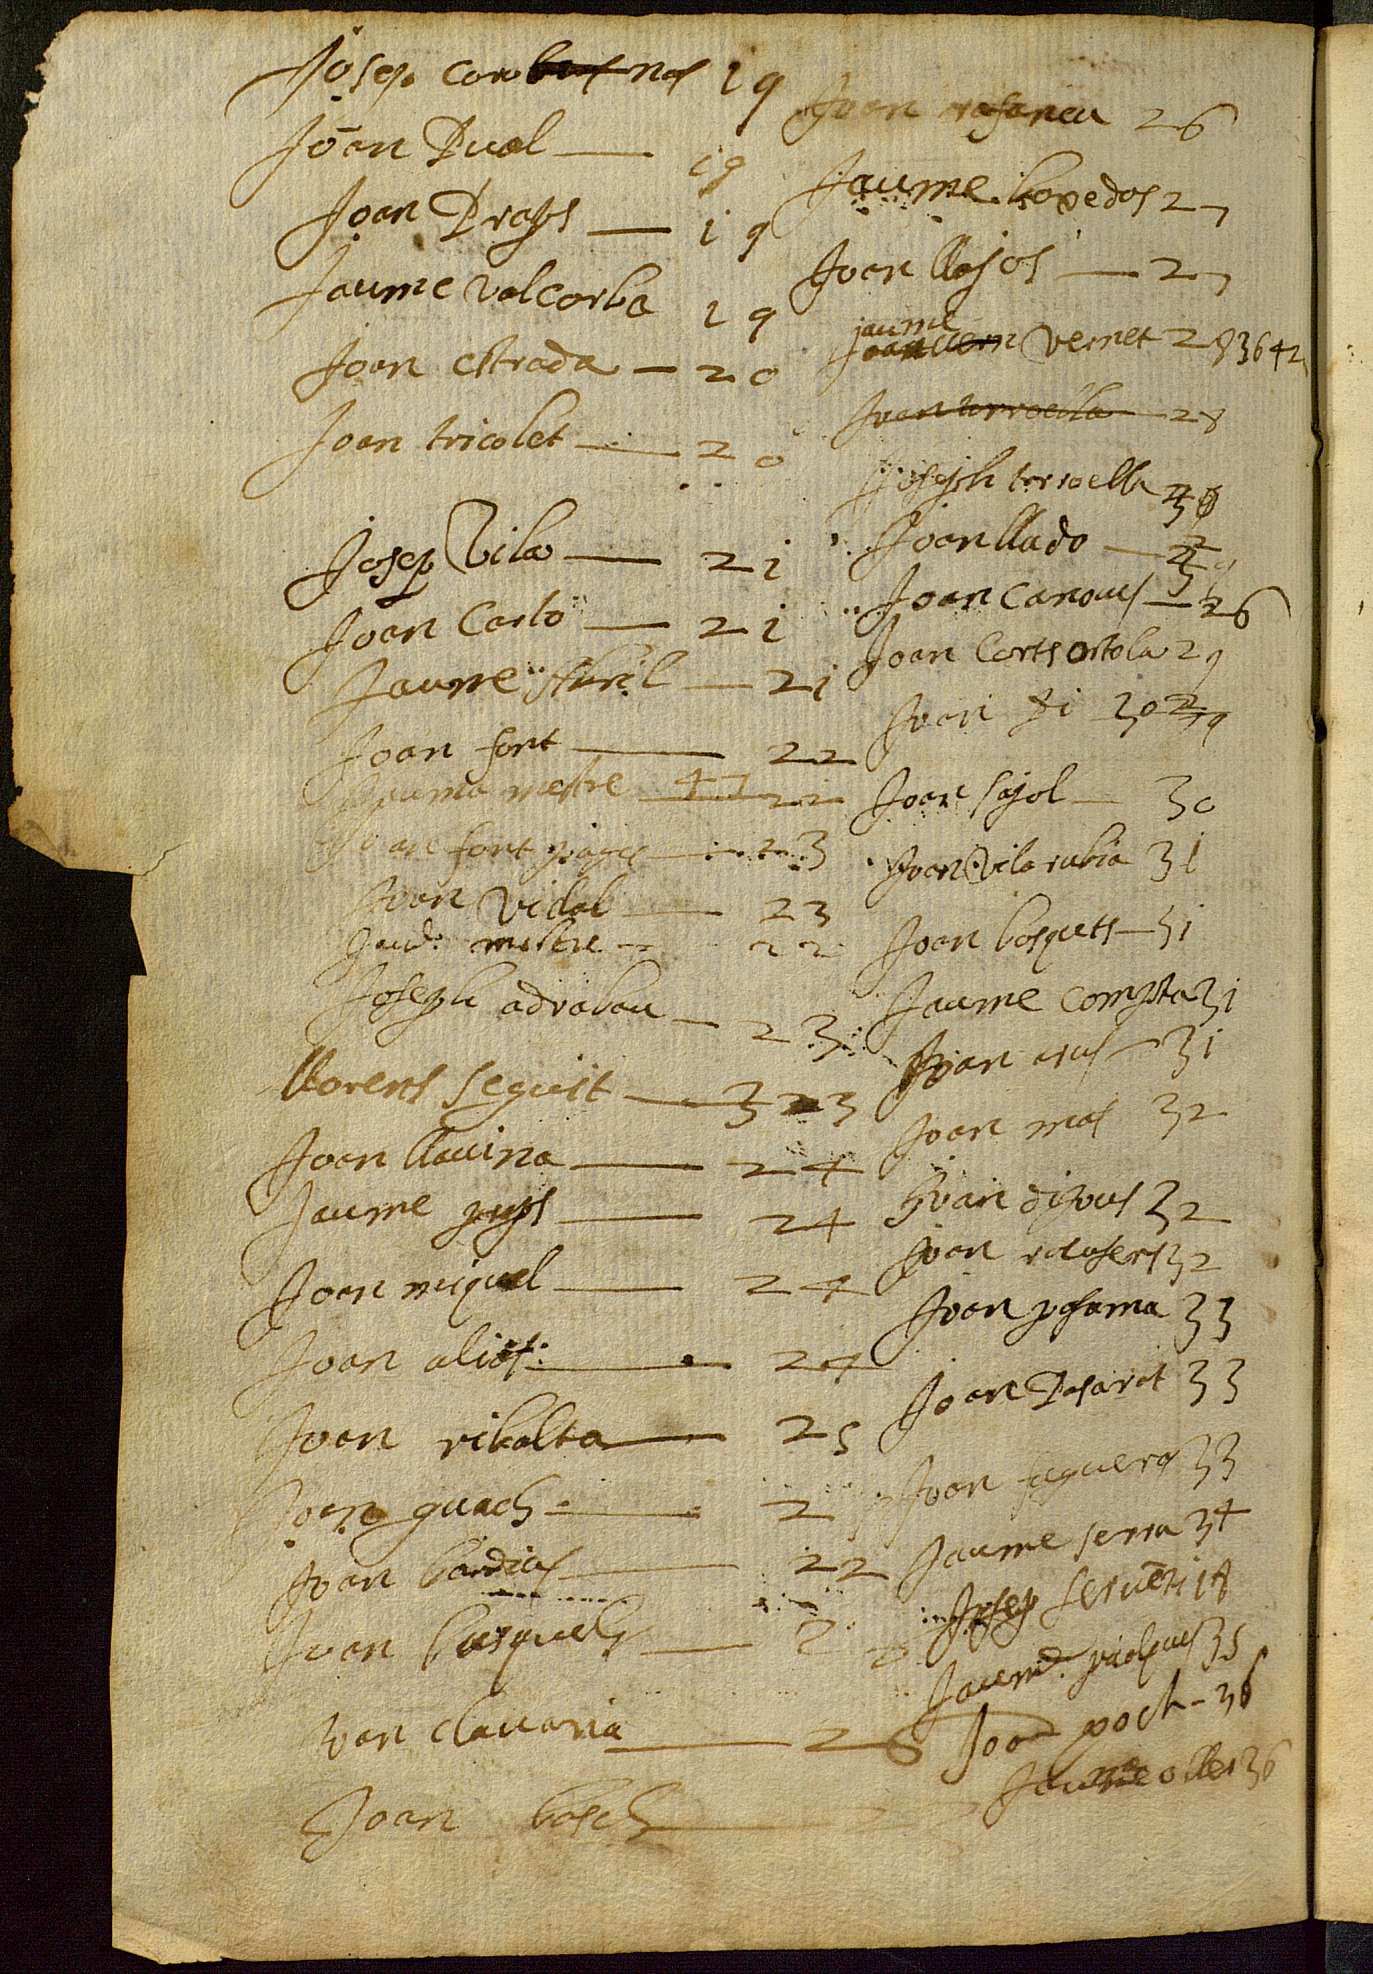 Josep corbines 19
Joan Dual 19
Joan Prats 19
Jaume valcorba 19
Joan estrada 20
Joan tricolet 20
Josep Vila 21
Joan Carbo 21
Jaume Abril 21
Joan font 22
Jauma mestre 47 22
Joan font pages 23
Joan vidal 23
Jaume mestre 22
Joseph adrobau 23
llorens seguit 323
Joan llavina 24
Jaume puys 24
Joan miquel 24
Joan aliot 24
Joan ribalta 25
Joan guach 2
Joan bardius 22
Joan busquets 2
Joan clavaria 26
Joan bosch
Joan 26
Jaume 27
Joan llosos 27
jaume vernet 2 83642
Joan torroella 28
Joseph torroella
Joan llado
Joan Canoves 26
Joan Cortsortola 29
Joan fi 30 29
Joan sajol 30
Joan Vilarubia 31
Joan bosquets 31
Jaume Compta 31
Joan arus 31
Joan mas 32
Joan dijous 32
Joan 32
Joan pasama 33
Joan Pasarot 33
Joan figueras 33
Jaume serra 34
Josep serueti 18
Jaume 35
Joan poch 36
Jaume oller 36